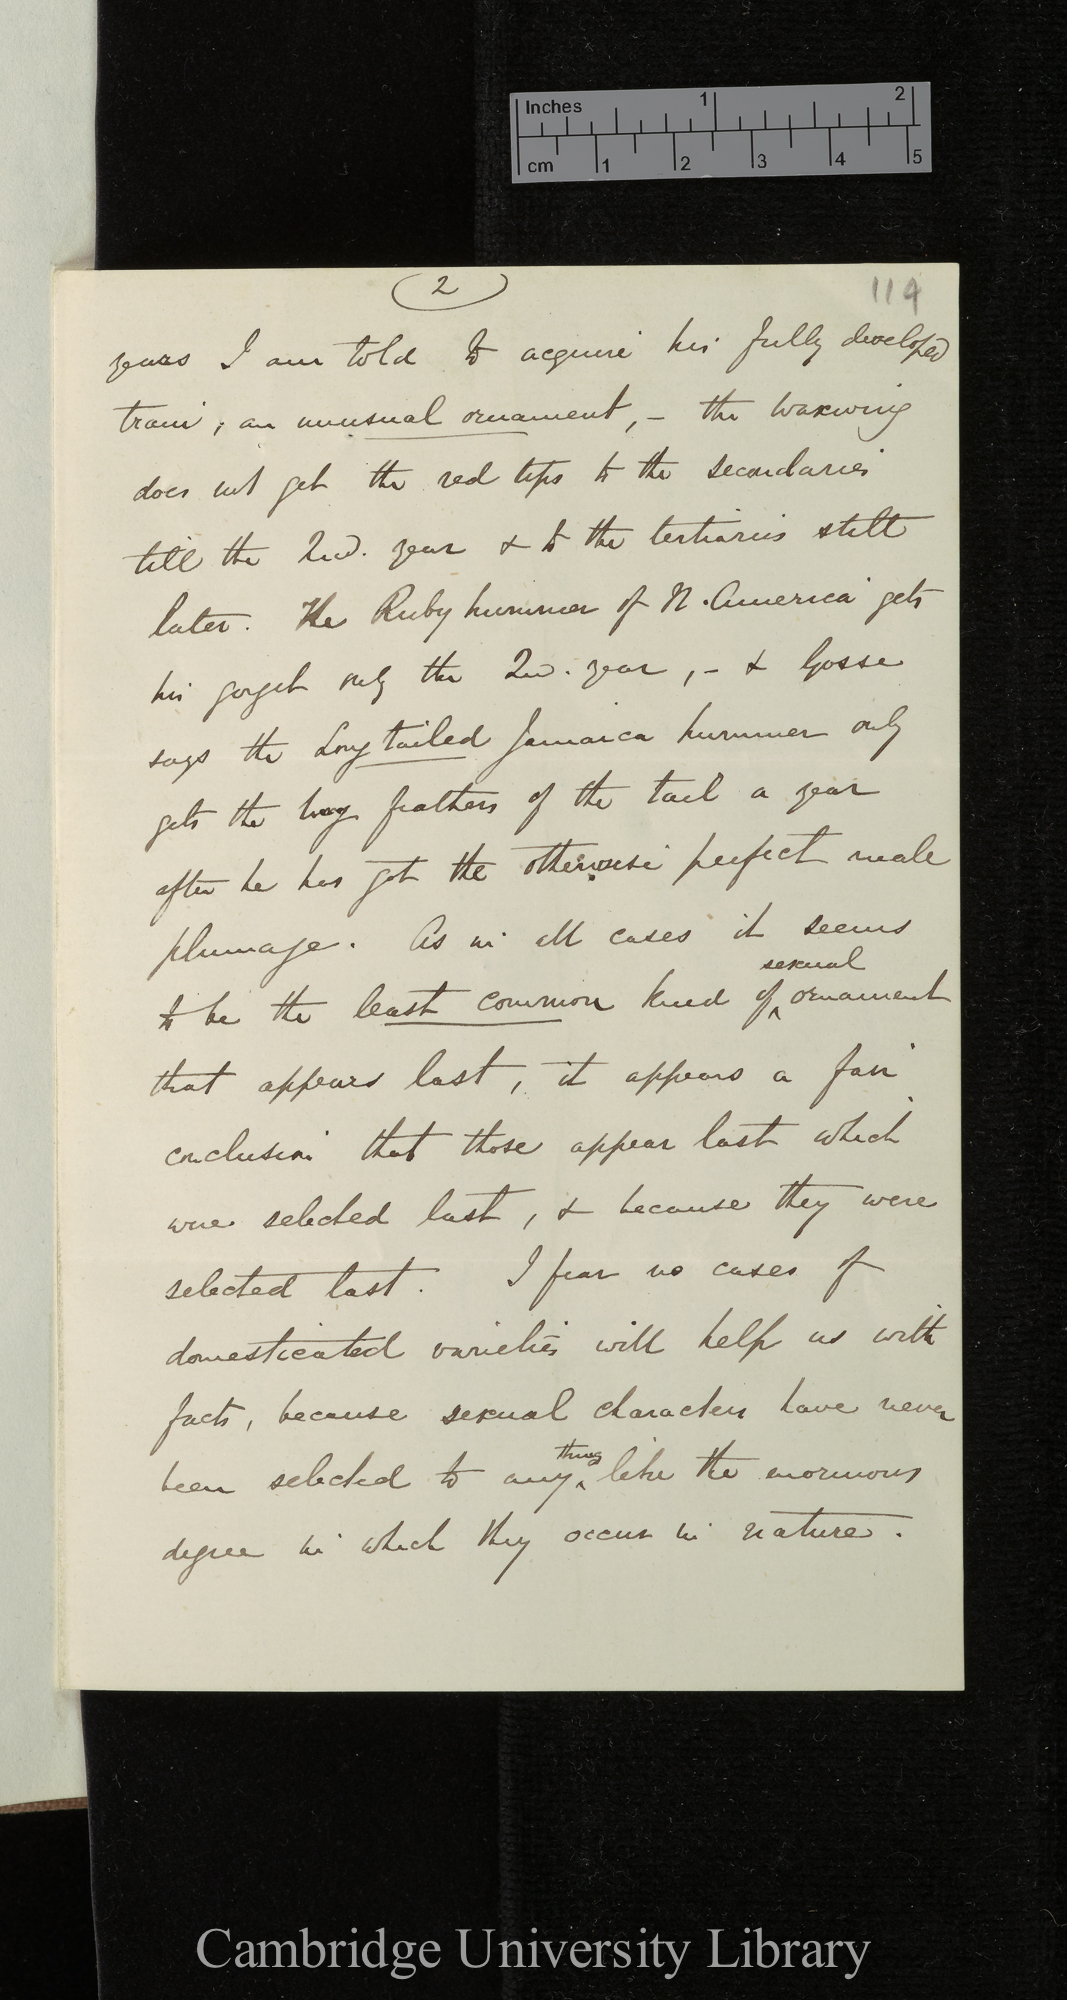 Inches 1 2
cm 1 2 3 4 5
2
114
years I am told to acquire his fully developed
train; an unusual ornament, – the waxwing
does not get the red tips to the secondaries
till the 2nd. year & to the tertiaries still
later. The Ruby hummer of N. America gets
his gorget only the 2nd. year, – & Gosse
says the Long tailed Jamaica hummer only
gets the long feathers of the tail a year
after he has got the otherwise perfect male
plumage. As in all cases it seems
sexual
to be the least common kind of ‸ ornament
that appears last, it appears a fair
conclusion that those appear last which
were selected last, & because they were
selected last. I fear no cases of
domesticated varieties will help us with
facts, because sexual characters have never
thing
been selected to any ‸ like the enormous
degree in which they occur in nature.
Cambridge University Library